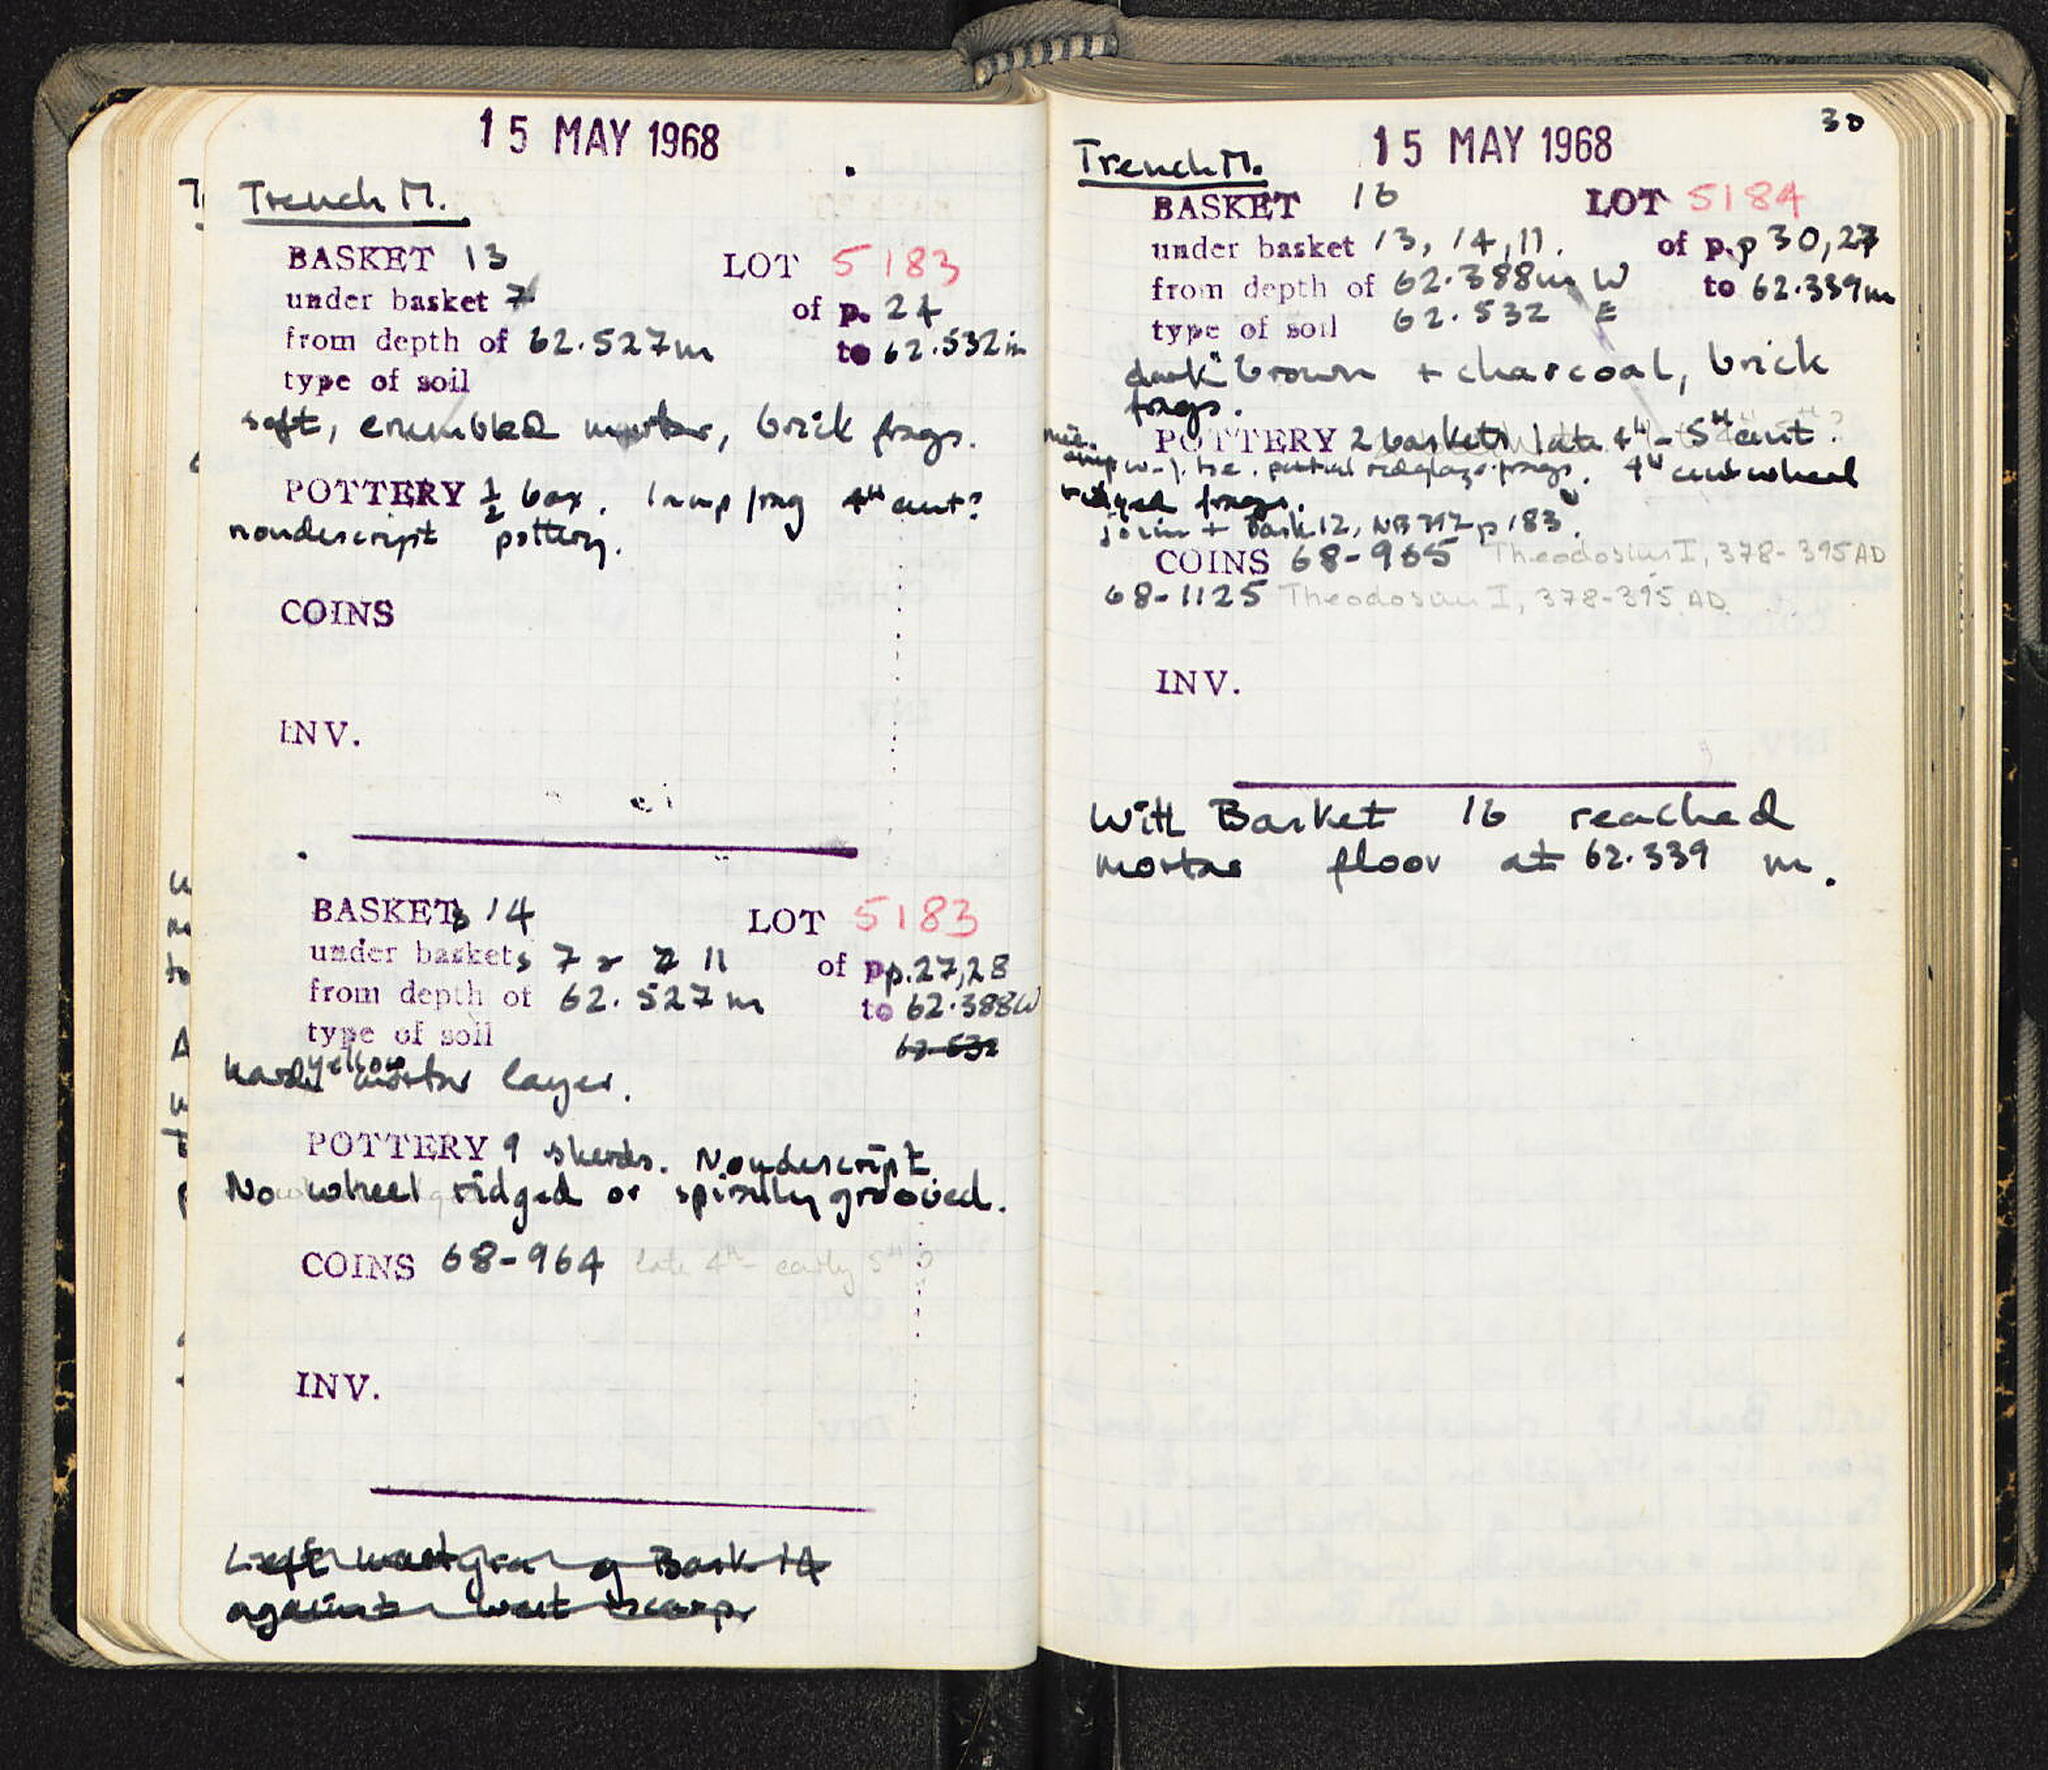 15 MAY 1968
Trench M.
BASKET 13 LOT 5183
under basket 7 of p. 24
from depth of 62.527m to 62.532m
type of soil
soft, crumbled mortar, brick frags.
POTTERY ½ box. lamp frag 4th cent?
nondescript pottery.
COINS
INV.
BASKET 14 LOT 5183
under baskets 7 & 11 of pp. 27,28
from depth of 62.527m to 62.388W
62.532
type of soil
hard yellow mortar layer.
POTTERY 9 sherds. Nondescript
No wheel ridged or spirally grooved.
COINS 68-964 late 4th - early 5th
INV.
Left of Bask 14
against west scarp
30
15 MAY 1968
Trench M.
BASKET 16 LOT 5184
under basket 13, 14, 11. of p.p 30, 27
from depth of 62.388m W to 62.339m
type of soil 62.532 E
dark brown + charcoal, brick
frags.
POTTERY 2 baskets late 4th - 5th cent.
frags. 4th cent wheel
ridged frags.
join + Bask 12, NB 392 p 183
COINS 68-965 Theodosius I, 378-395 AD
68-1125 Theodosius I, 378-395 AD
INV.
With Basket 16 reached
mortar floor at 62.339 m.